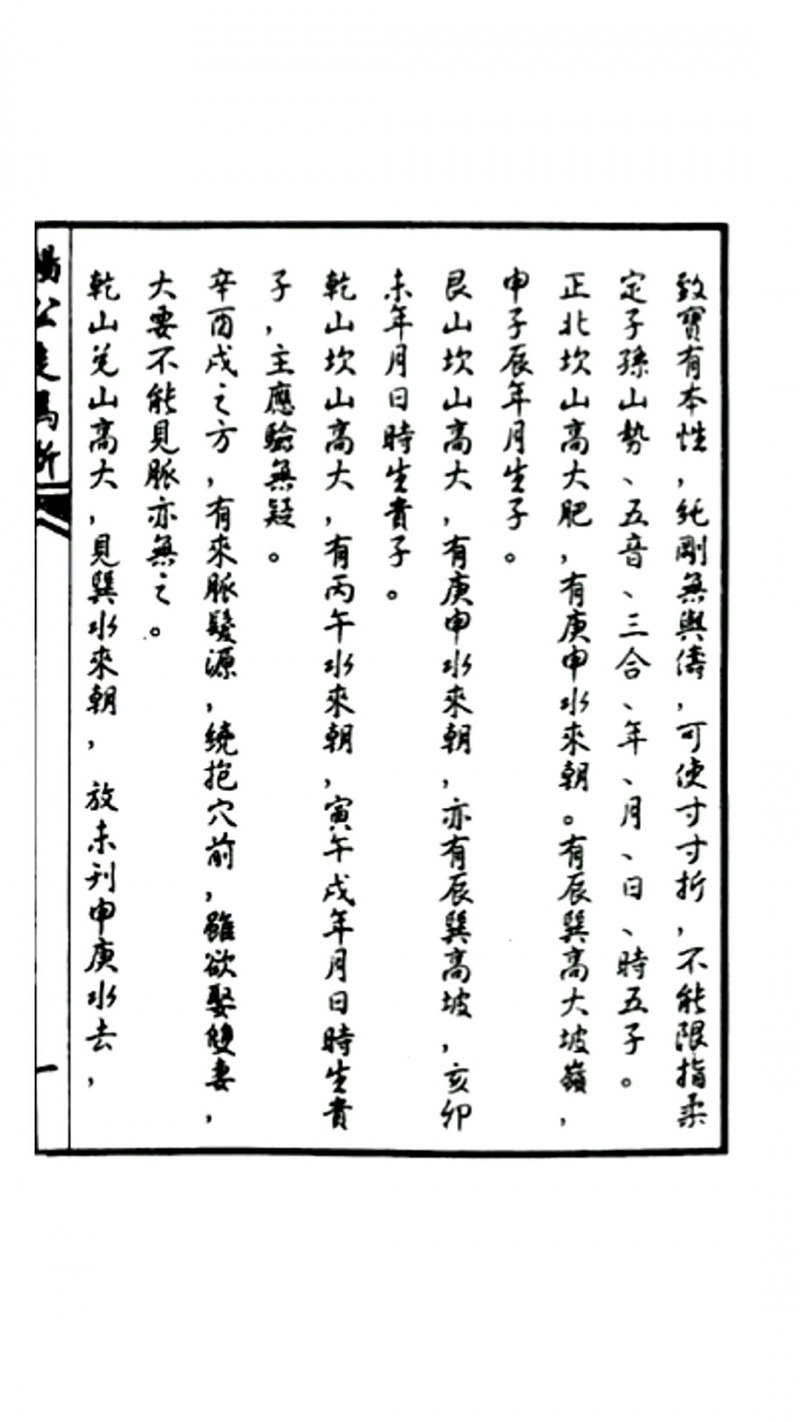 致寶有本性，純剛無與儔，可使寸寸折，不能限指柔
定子孫山勢、五音、三合、年、月、日、時五子。
正北坎山高大肥，有庚申水來朝。有辰巽高大坡嶺，
申子辰年月生子。
艮山坎山高大，有庚申水來朝，亦有辰巽高坡，亥卯
未年月日時生貴子。
乾山坎山高大，有丙午水來朝，寅午戌年月日時生貴
子，主應驗無疑。
辛酉戌之方，有來脈髮源，繞抱穴前，雖欲娶雙妻，
大要不能見脈亦無之。
乾山兌山高大，見巽水來朝，放未刊申庚水去，
公
一